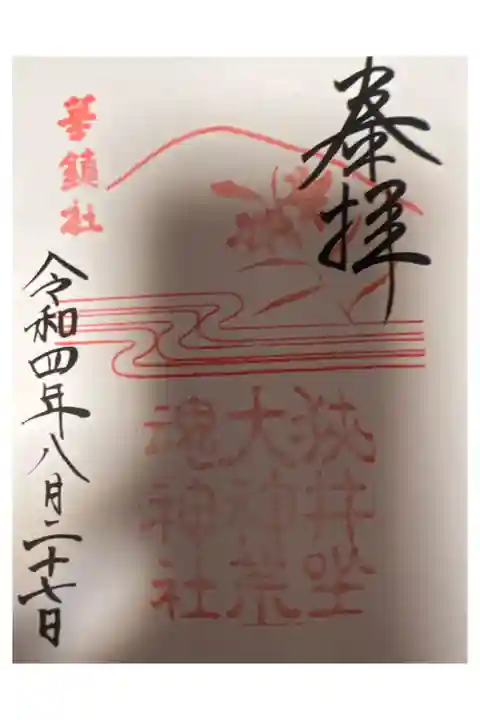 奉拝
狭井坐
大神荒
魂神社
華鎮社
令和四年八月二十七日